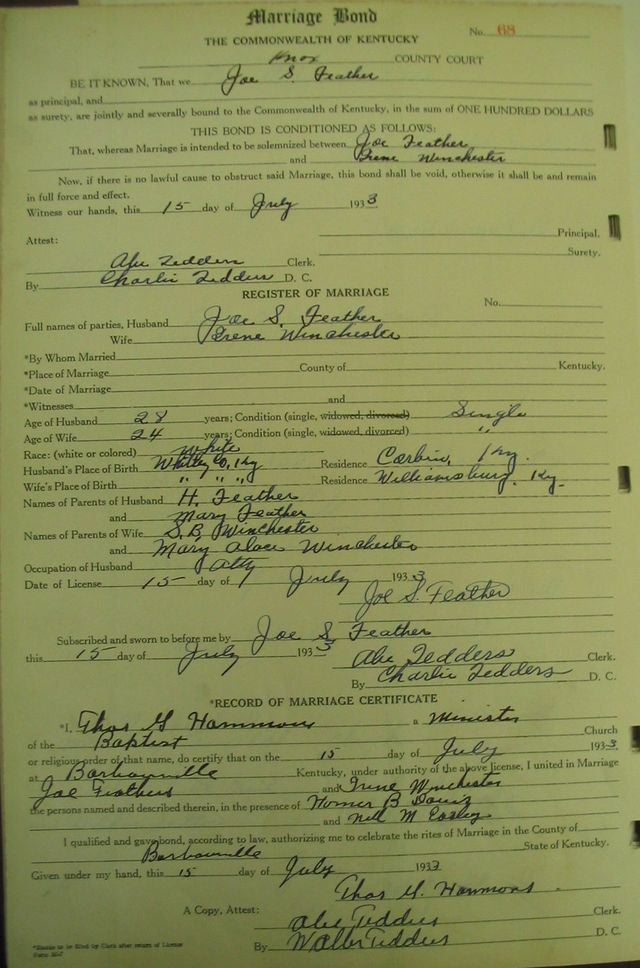 Marriage Bond
No. 68
THE COMMONWEALTH OF KENTUCKY
Knox COUNTY COURT
BE IT KNOWN, That we Joe S. Feather
as principal, and
as surety, are jointly and severally bound to the Commonwealth of Kentucky, in the sum of ONE HUNDRED DOLLARS
THIS BOND IS CONDITIONED AS FOLLOWS:
That, whereas Marriage is intended to be solemnized between Joe Feather
and Irene Winchester
Now, if there is no lawful cause to obstruct said Marriage, this bond shall be void, otherwise it shall be and remain
in full force and effect.
Witness our hands, this 15 day of July 1933
Principal.
Attest:
Surety.
Abe Tedders Clerk.
By Charlie Tedders D. C.
REGISTER OF MARRIAGE
No.
Full names of parties, Husband Joe S. Feather
Wife Irene Winchester
*By Whom Married
*Place of Marriage County of Kentucky.
*Date of Marriage
*Witnesses and
Age of Husband 28 years; Condition (single, widowed, divorced) Single
Age of Wife 24 years; Condition (single, widowed, divorced) "
Race: (white or colored) White
Husband's Place of Birth Whitley Co, Ky Residence Corbin, Ky.
Wife's Place of Birth " " " Residence Williamsburg, Ky.
Names of Parents of Husband H. Feather
and Mary Feather
Names of Parents of Wife S. B. Winchester
and Mary Winchester
Occupation of Husband Atty
Date of License 15 day of July 1933
Joe S. Feather
Subscribed and sworn to before me by Joe S. Feather
this 15 day of July 1933
Abe Tedders Clerk.
By Charlie Tedders D. C.
*RECORD OF MARRIAGE CERTIFICATE
*I, Thos G Hammons a Minister
of the Baptist Church
or religious order of that name, do certify that on the 15 day of July 1933
at Barbourville Kentucky, under authority of the above license, I united in Marriage
Joe Feathers and Irene Winchester
the persons named and described therein, in the presence of Homer B
and Nell M
I qualified and gave bond, according to law, authorizing me to celebrate the rites of Marriage in the County of
Barbourville State of Kentucky.
Given under my hand, this 15 day of July 1933
Thos G. Hammons.
A Copy, Attest: Abe Tedders Clerk.
By Walter Tedders D. C.
*Blanks to be filled by Clerk after return of License